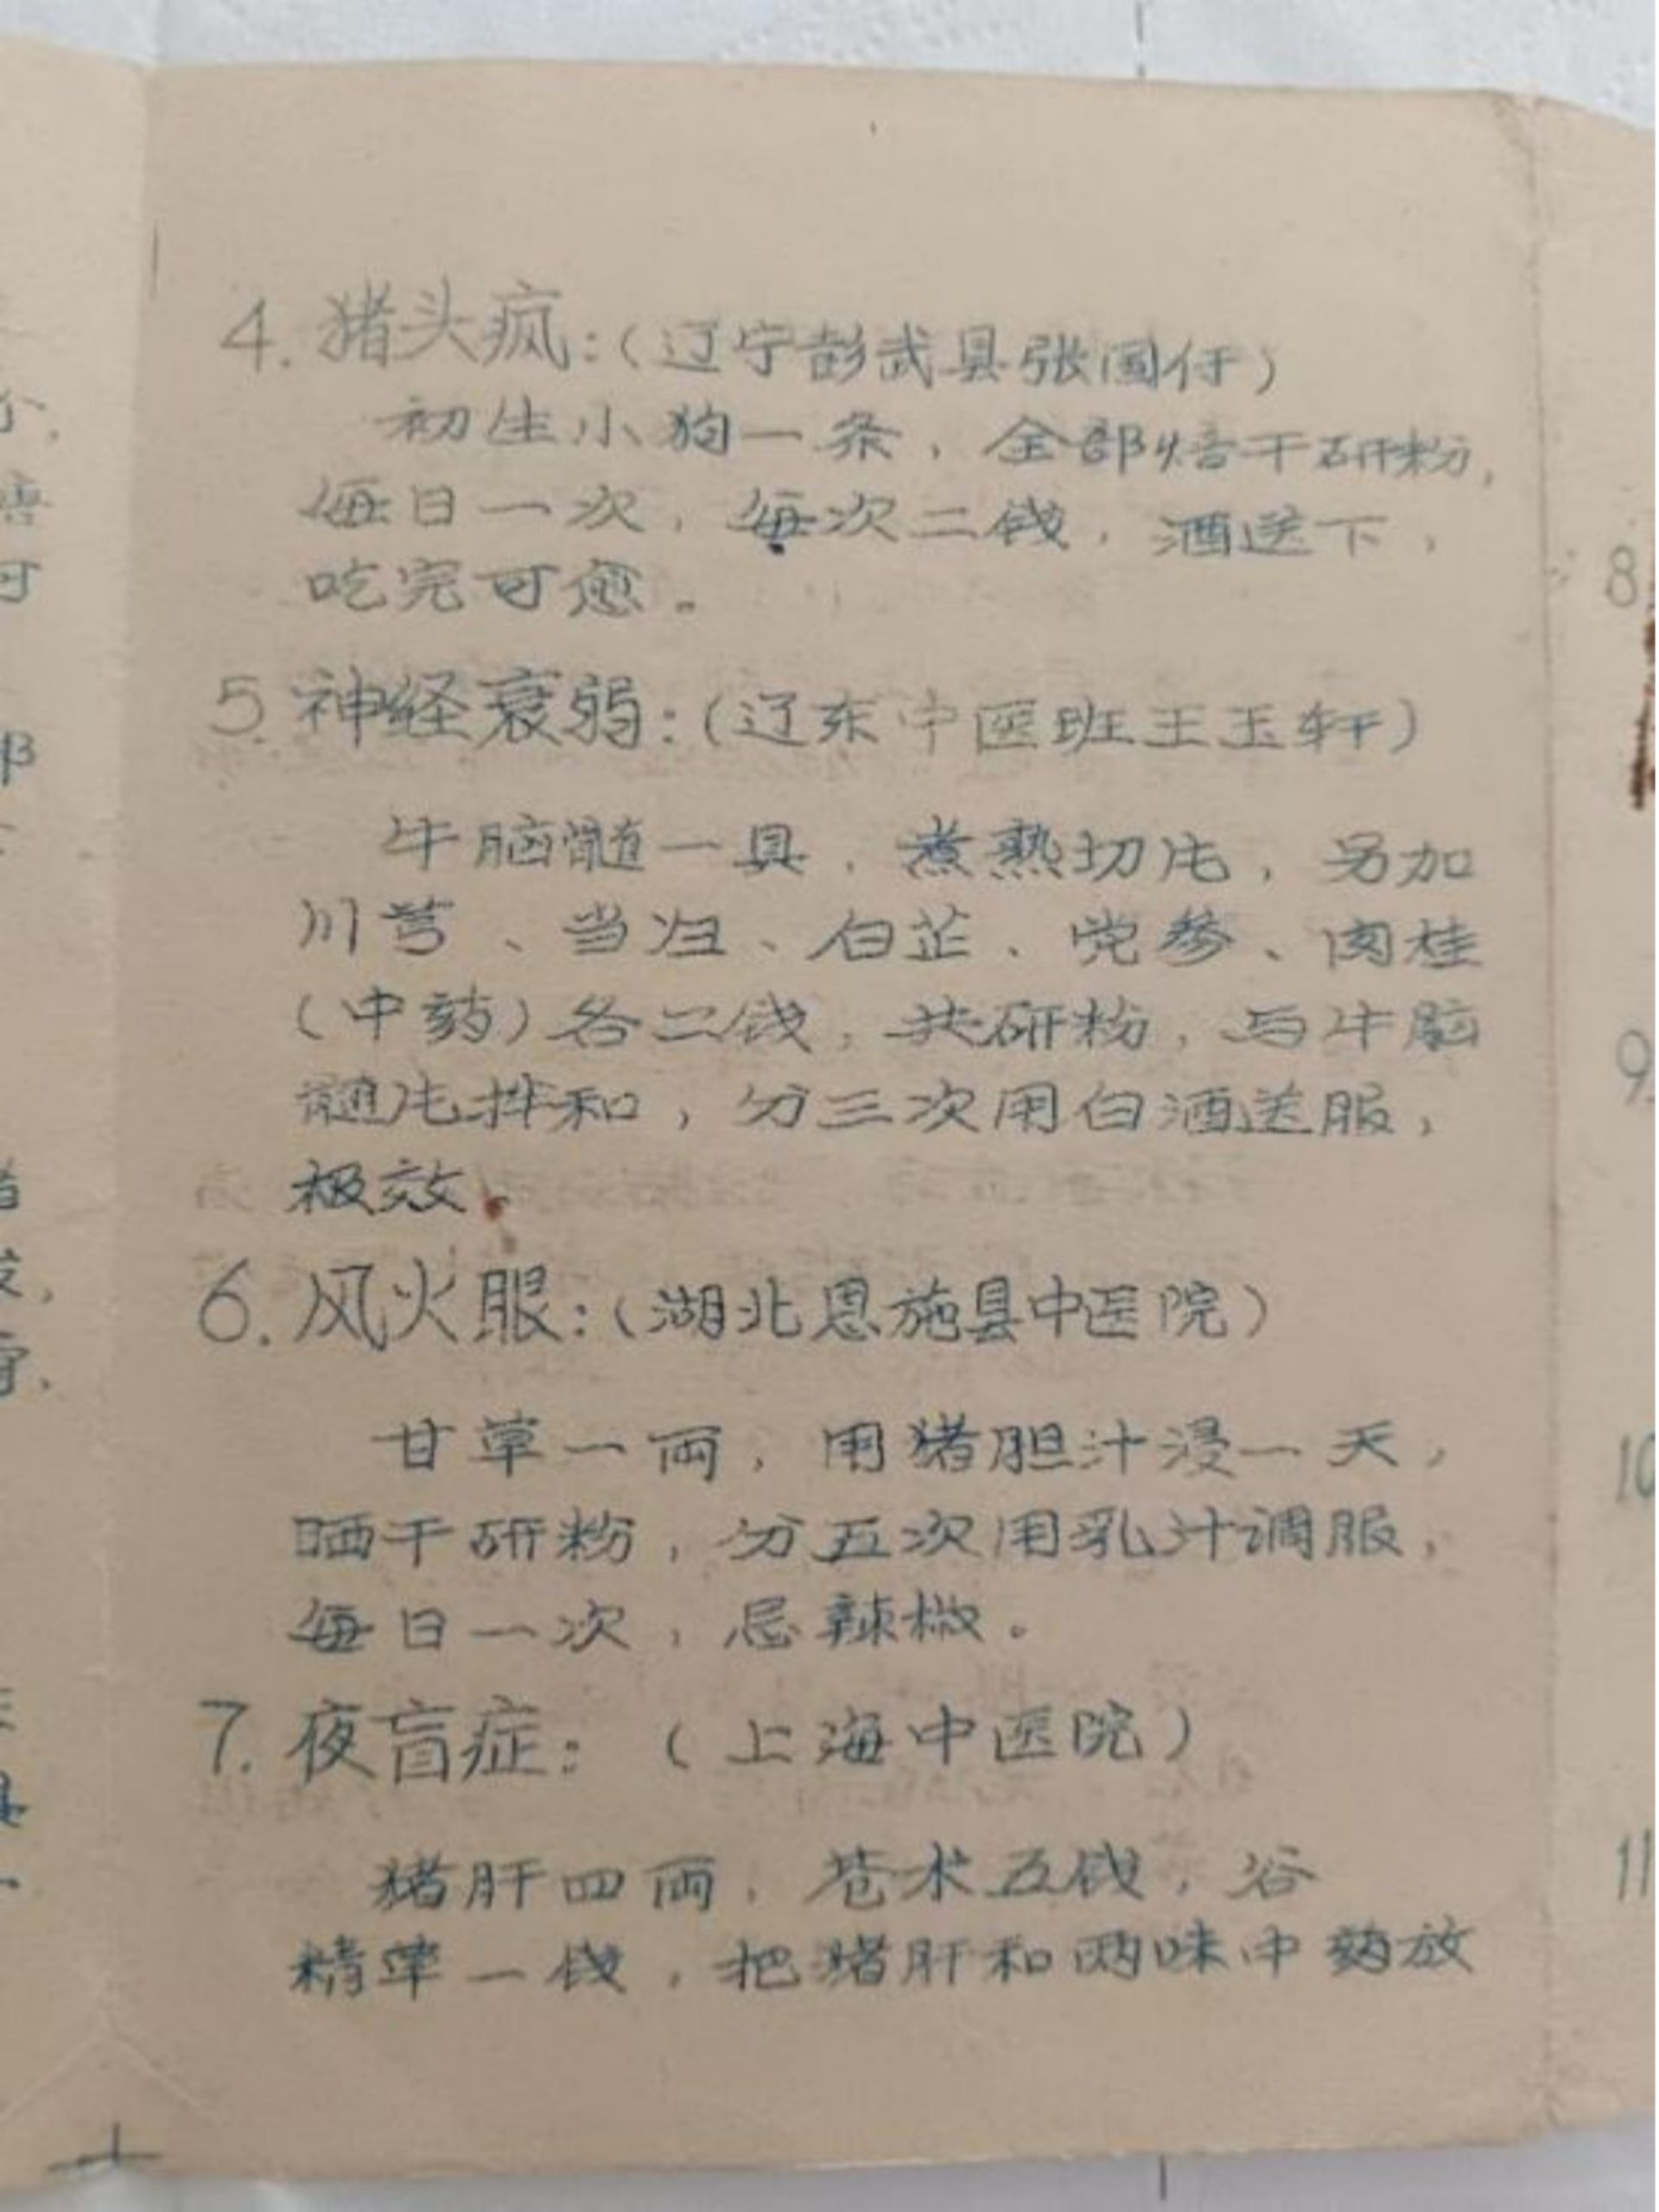 4. 猪头疯:(辽宁彭武县张国仔)
初生小狗一条,全部焙干研粉,
每日一次,每次二钱,酒送下,
吃完可愈。
5. 神经衰弱:(辽东中医班王玉轩)
牛脑髓一具,煮熟切片,另加
川芎、当归、白芷、党参、肉桂
(中药)各二钱,共研粉,与牛脑
髓片拌和,分三次用白酒送服,
极效。
6. 风火眼:(湖北恩施县中医院)
甘草一两,用猪胆汁浸一天,
晒干研粉,分五次用乳汁调服,
每日一次,忌辣椒。
7. 夜盲症:(上海中医院)
猪肝四两,苍术五钱,谷
精草一钱,把猪肝和两味中药放
8
9
10
11